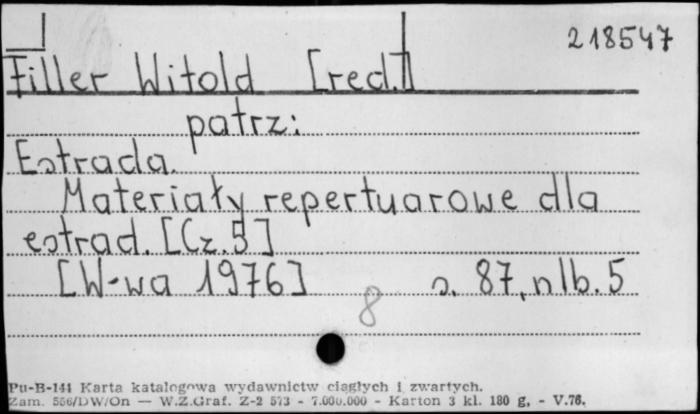 218547
Filler Witold [red.]
patrz:
Estrada.
Materiały repertuarowe dla
estrad. [Cz. 5]
[W-wa 1976] s. 87, nlb. 5
8
Pu-B-144 Karta katalogowa wydawnictw ciągłych i zwartych.
Zam. 556/DW/On — W.Z.Graf. Z-2 573 - 7.000.000 - Karton 3 kl. 180 g, - V.76.